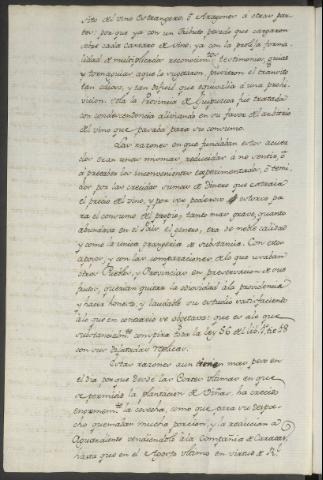 sito del vino Estrangero, ó Aragones á otras par
tes: por que ya con un tributo pesado que cargaron
sobre cada cantaro de vino, ya con la prolija forma
lidad de multiplicar reconocim.tos testimonios, guias
y tornaguias aque lo sugetaron, pusieron el transito
tan caro, y tan dificil que equivalia á una prohi
vicion. Sola la Provincia de Guipuzcoa fue tratada
con condescendencia aliviando en su favor del arbitrio
del vino que pasaba para su consumo.
Las razones en que fundaban estos acuer
dos eran unas mismas reducidas á no sentir, ó
á precaver los inconvenientes experimentados, ó temi
dos por las crecidas sumas de dinero que extraia
el precio del vino, y por ser poderoso estorvo pa
ra el consumo del propio, tanto mas grave, quanto
abundaba en el Pais el genero, era de noble calidad
y como la unica grangeria de substancia. Con estos
apoyos, y con las comparaciones de lo que usaban
otros Pueblos, y Provincias en preservacion de sus
frutos, querian quitar la odiosidad á la providencia
y hacer honesto, y laudable su estudio satisfaciendo
á lo que en contrario se objetaba: que es á lo que
substancialm.te conspira toda la ley 56 del lib. 1.º tt.º 18
con sus dilatadas replicas.
Estas razones aun tienen mas peso en
el dia por que desde las Cortes ultimas en que
se permitió la plantacion de Viñas, ha crecido
enormem.te la cosecha, como que para su despa
cho quemaban mucha porcion, y la reducian á
Aguardiente vendiendole á la Compañia de Caracas,
hasta que en el Agosto ultimo en virtud de R.l